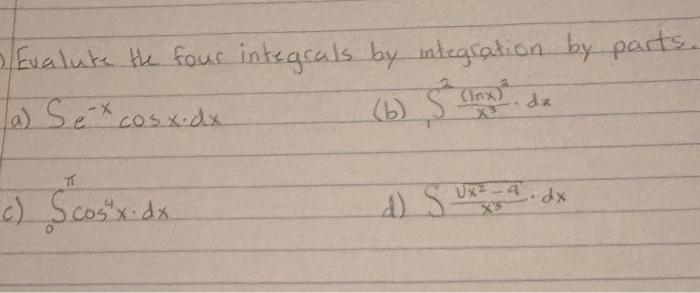 Evalute the four integrals by integration by parts.
a) ∫ e^-x cosx·dx (b) ∫_1^2 (lnx)^2/x^3 · dx
c) ∫_0^π cos^4 x·dx d) ∫ √x^2-9/x^3 · dx